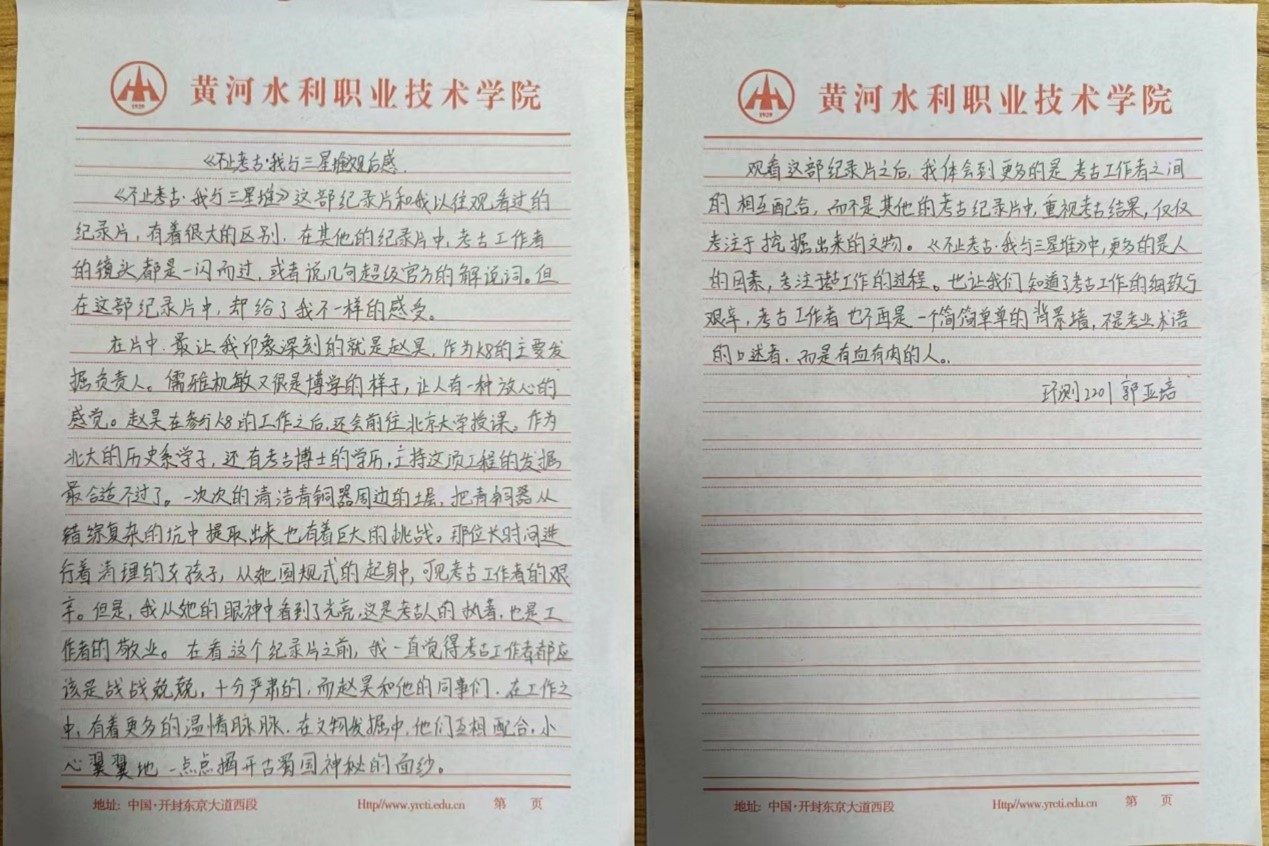 1929
黄河水利职业技术学院
《不止考古·我与三星堆观后感.
《不止考古·我与三星堆》这部纪录片和我以往观看过的
纪录片,有着很大的区别.在其他的纪录片中,考古工作者
的镜头都是一闪而过,或者说几句超级官方的解说词。但
在这部纪录片中,却给了我不一样的感受。
在片中.最让我印象深刻的就是赵昊,作为k8的主要发
掘负责人。儒雅机敏又很是博学的样子,让人有一种放心的
感觉。赵昊在参与k8的工作之后,还会前往北京大学授课。作为
北大的历史系学子,还有考古博士的学历,主持这项工程的发掘
最合适不过了。一次次的清洁青铜器周边的土层,把青铜器从
错综复杂的坑中提取出来也有着巨大的挑战。那位长时间进
行着清理的女孩子,从她圆规式的起身中,可见考古工作者的艰
辛。但是,我从她的眼神中看到了光亮,这是考古人的执着,也是工
作者的敬业。在看这个纪录片之前,我一直觉得考古工作者都应
该是战战兢兢,十分严肃的,而赵昊和他的同事们.在工作之
中,有着更多的温情脉脉.在文物发掘中,他们互相配合,小
心翼翼地一点点揭开古蜀国神秘的面纱。
地址: 中国·开封东京大道西段 Http//www.yrcti.edu.cn 第 页
1929
黄河水利职业技术学院
观看这部纪录片之后,我体会到更多的是考古工作者之间
的相互配合,而不是其他的考古纪录片中,重视考古结果,仅仅
考注于挖掘出来的文物。《不止考古·我与三星堆》中,更多的是人
的因素,考注于工作的过程。也让我们知道了考古工作的细致与
艰辛,考古工作者也不再是一个简简单单的背景墙,不是专业术语
的口述者.而是有血有肉的人。.
环测2201 郭亚培
地址: 中国·开封东京大道西段 Http//www.yrcti.edu.cn 第 页